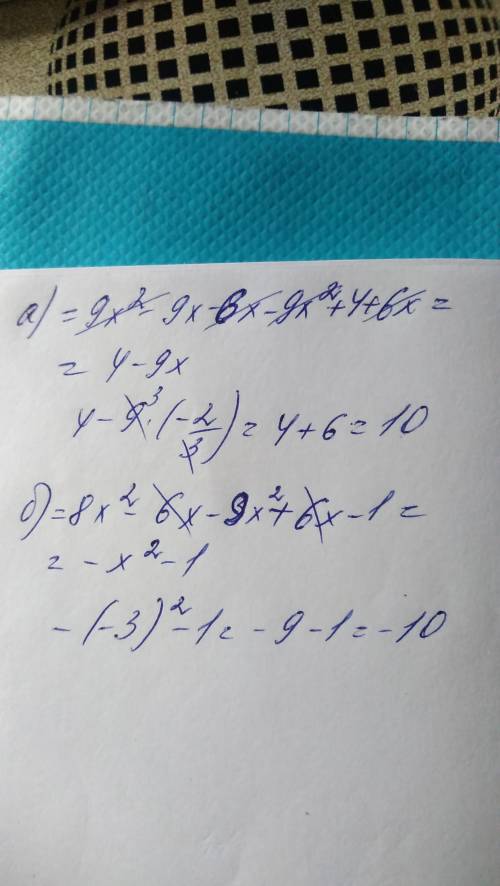 а) = 9x² - 9x - 6x - 9x² + 4 + 6x =
= 4 - 9x
4 - 9³ · (-2/3) = 4 + 6 = 10
б) = 8x² - 6x - 9x² + 6x - 1 =
= - x² - 1
- (-3)² - 1 = - 9 - 1 = - 10